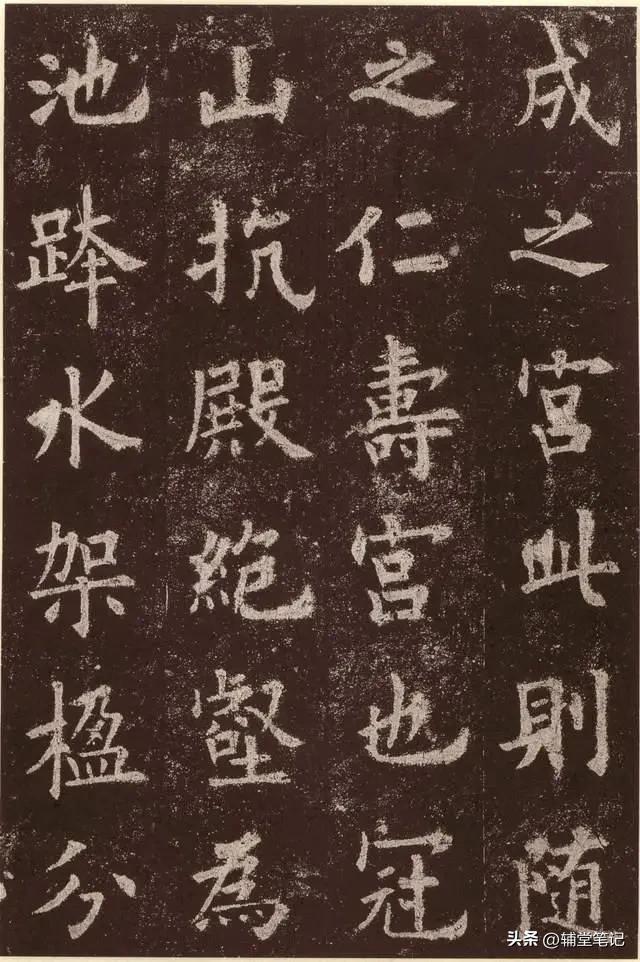 成之宮此則随
之仁壽宮也冠
山抗殿絶壑為
池跨水架楹分
头条 @辅堂笔记